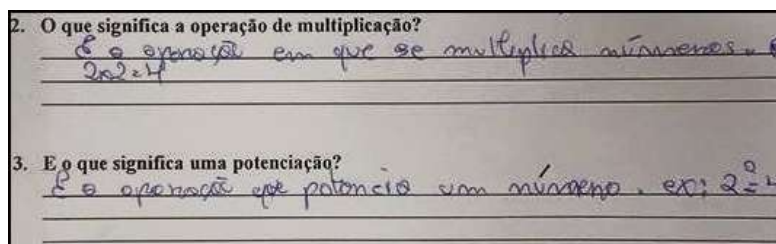 2. O que significa a operação de multiplicação?
É a operação em que se multiplica números.
2x2=4
3. E o que significa uma potenciação?
É a operação que potencia um número. ex: 2²=4